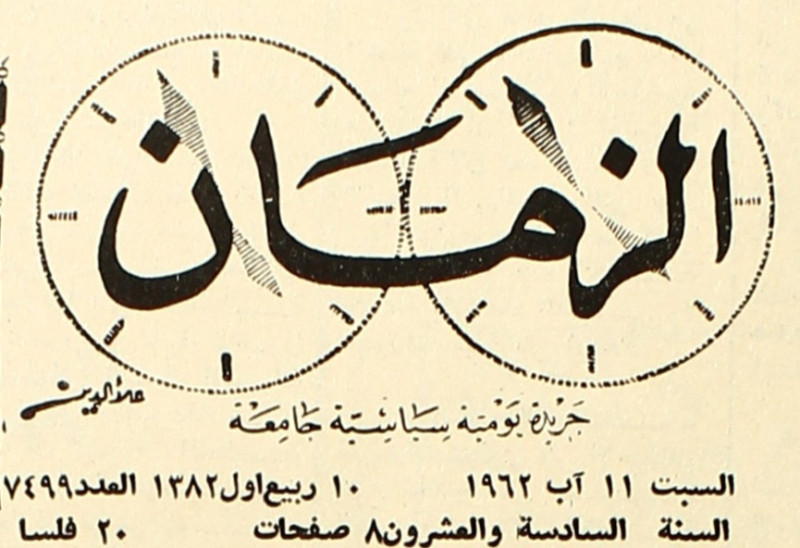 الزمان
علاءالدين
جريدة يومية سياسية جامعة
السبت ١١ آب ١٩٦٢ ١٠ ربيع اول ١٣٨٢ العدد ٧٤٩٩
السنة السادسة والعشرون ٨ صفحات ٢٠ فلسا